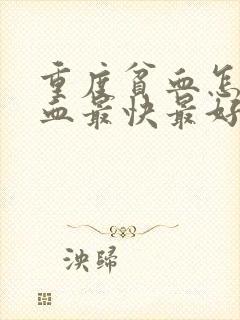 重度貧血怎
血最快最好
泱歸